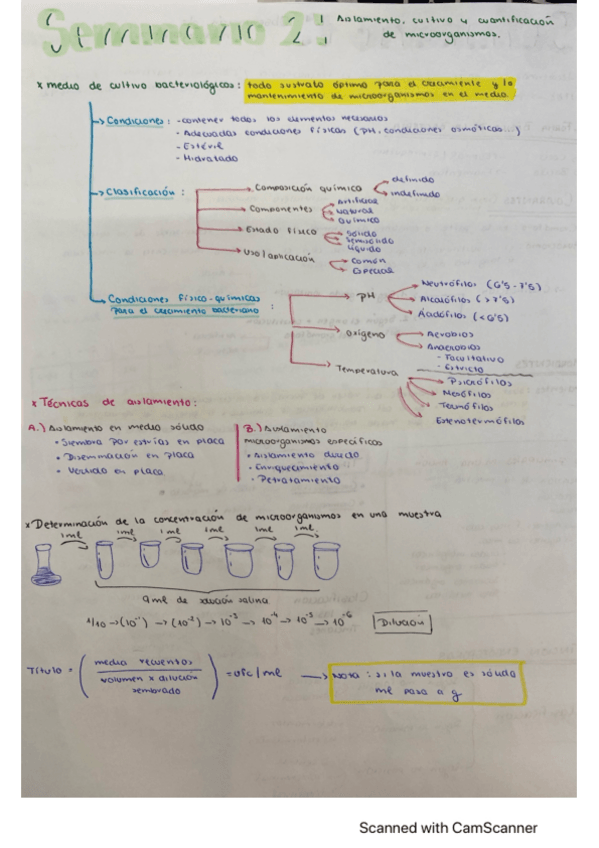 Seminario 2: Aislamiento, cultivo y cuantificación
de microorganismos.
x medio de cultivo bacteriológicos: todo sustrato óptimo para el crecimiento y la
mantenimiento de microorganismos en el medio.
→ Condiciones: - contener todos los elementos necesarios
- Adecuadas condiciones físicas (pH, condiciones osmóticas...)
- Estéril
- Hidratado
→ Clasificación:
→ Composición química
definido
indefinido
→ Componentes
Artificial
Natural
Químico
→ Estado físico
Sólido
Semisólido
Líquido
→ Uso/aplicación
Común
Especial
→ Condiciones físico-químicas
para el crecimiento bacteriano:
→ pH
Neutrófilos (6'5-7'5)
Alcalófilos (>7'5)
Acidófilos (<6'5)
→ oxígeno
→ Aerobios
→ Anaerobios
- Facultativo
- Estricto
→ Temperatura
Psicrófilos
Mesófilos
Termófilos
Estenotermófilos
x Técnicas de aislamiento:
A.) Aislamiento en medio sólido
• Siembra por estrías en placa
• Diseminación en placa
• Vertido en placa
B.) Aislamiento
microorganismos específicos
• Aislamiento directo
• Enriquecimiento
• Pretratamiento
x Determinación de la concentración de microorganismos en una muestra
1ml 1ml 1ml 1ml 1ml 1ml
9ml de solución salina
1/10 →(10⁻¹) → (10⁻²) → 10⁻³ → 10⁻⁴ → 10⁻⁵ → 10⁻⁶ Dilución
Título = (media recuentos / volumen x dilución sembrado) = ufc/ml → Nota: si la muestra es sólida
ml pasa a g
Scanned with CamScanner